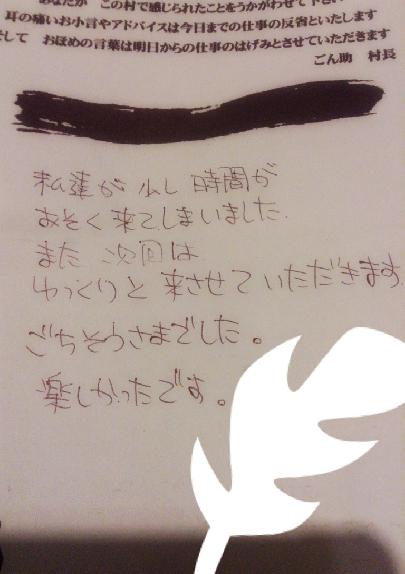 あなたが この村で感じられたことをうかがわせて下さい
耳の痛いお小言やアドバイスは今日までの仕事の反省といたします
そして おほめの言葉は明日からの仕事のはげみとさせていただきます
ごん助 村長
私達が少し時間が
おそく来てしまいました.
また 次回は
ゆっくりと来させていただきます
ごちそうさまでした。
楽しかったです。